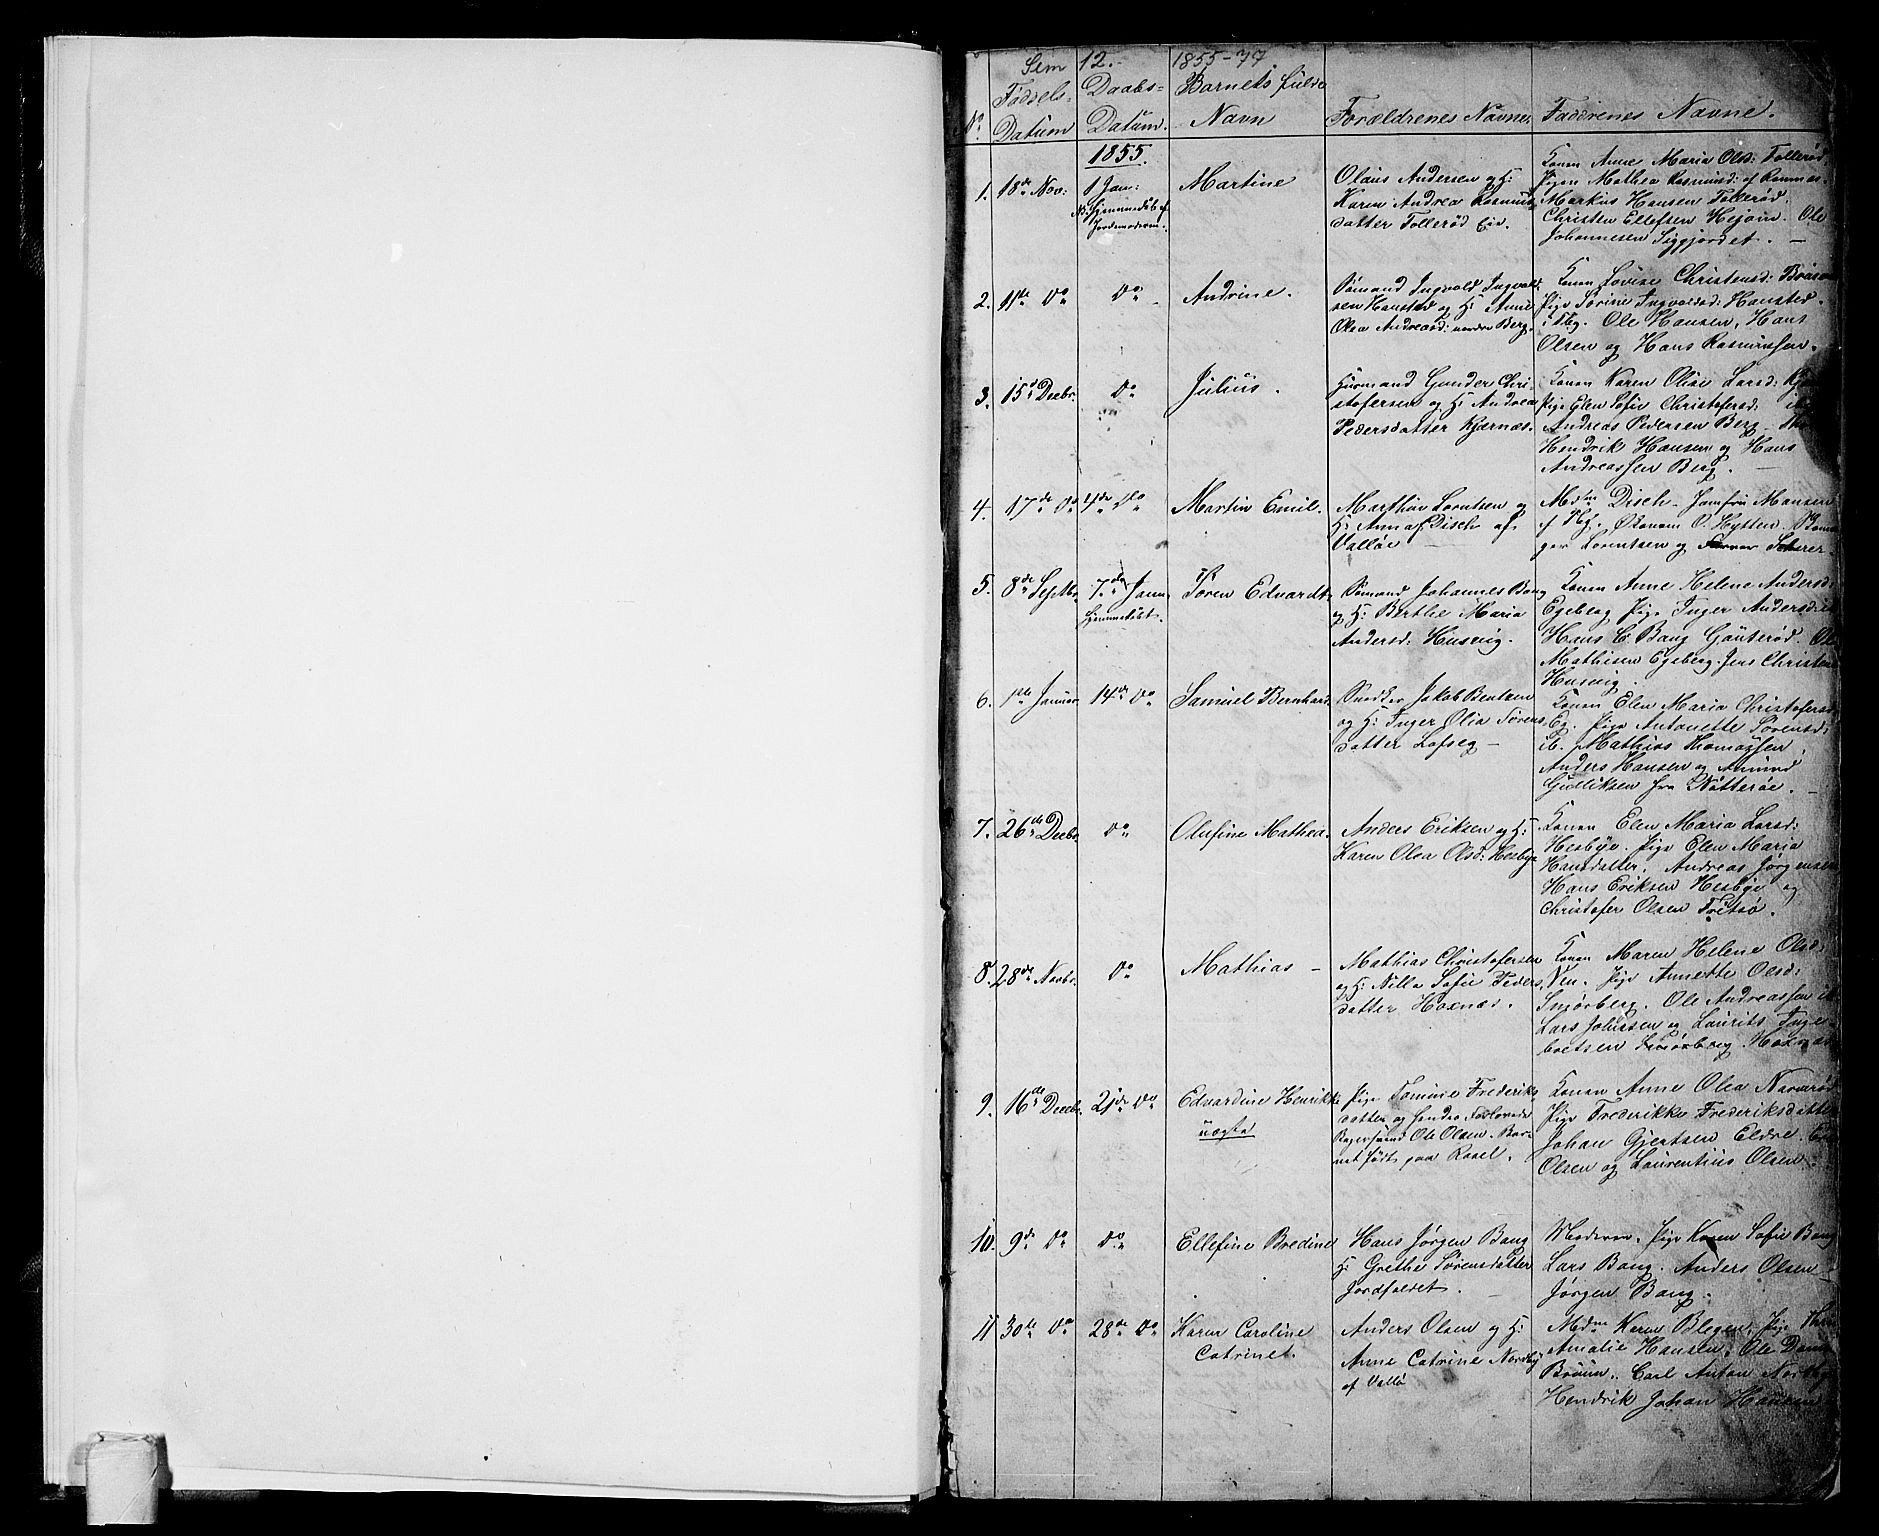 Sem 12. 1855-77
No. Fødsels- Datum
Daabs- Datum.
Barnets fulde Navn
Forældrenes Navne.
Faddrenes Navne.
1855.
1. 18de Nov:
1 Jan: Hjemmedøb af Jordemoderen.
Martine
Olaus Andersen og H:
Karen Andrea Rasmus-
datter Tollerød Eie.
Konen Anne Maria Olsd: Tollerød
Pigen Mathea Rasmusd: af Ramnes.
Markus Hansen Tollerød.
Christen Ellefsen Hejom. Ole
Johannesen Siggjordet. —
2. 11te Do
Do
Andrine.
Sømand Ingvald Ingvald-
sen Hansted og H: Anne
Olea Andreasd: nordre Berg.
Konen Lovise Christensd:
Pige Sørine Ingvaldsd: Hansted.
i Tbg. Ole Hansen, Hans
Olsen og Hans Rasmussen.
3. 15d Decbr.
Do
Julius.
Huusmand Gunder Chri-
stofersen og H: Andrea
Pedersdatter Kjærnæs.
Konen Karen Olise Larsd:
Pige Elen Sofie Christofersd:
Andreas Pedersen Berg.
Hendrik Hansen og Hans
Andreassen Berg. —
4. 17de Do
4de Do
Martin Emil.
Marthin Lorntsen og
H: Anna Disch af
Valløe —
Mdm Disch. Jomfru Hansen
af Tbg. Økonom O. Hytten.
Lorentsen og Scherer.
5. 8de Septbr
7de Janr. Hjemmedøbt.
Søren Edvardt.
Sømand Johannes Bang
og H: Berthe Maria
Andersd: Husvig.
Konen Anne Helene Andersd:
Egeberg Pige Inger Andersd: ib
Hans C. Bang Gauterød. Ole
Mathisen Egeberg. Jens Christens
Husvig.
6. 1ste Januar
14de Do
Samuel Bernhard.
Snedker Jakob Bentsen
og H: Inger Olia Sørens
datter Lofseg —
Konen Elen Maria Christofersd
Eg. Pige Antonette Sørensd:
ib. Mathias Thomassen,
Anders Hansen og Amund
Gulliksen fra Nøtterøe. —
7. 26de Decbr
Do
Olufine Mathea.
Anders Eriksen og H:
Karen Olea Olsd: Hesbye
Konen Elen Maria Larsd:
Hesbye. Pige Elen Maria
Hansdatter. Andreas Jørgensen
Hans Eriksen Hesbye og
Christofer Olsen Fritsø.
8. 28de Novbr.
Do
Mathias —
Mathias Christofersen
og H: Nilla Sofie Peders
datter Hoxnæs.
Konen Maren Helene Olsd:
Ven. Pige Annette Olsd:
Smørberg. Ole Andreassen ib
Lars Johnsen og Laurits Inge-
bretsen Smørberg Hoxnæs
9. 16de Decbr.
21de Do
Edvardine Henrikke
uægte
Pige Tomine Frederiks
datter og hendes Forlovede
Ole Olsen. Bar-
net født paa Ravel.
Konen Anne Olea Narverød
Pige Frederikke Frederiksdatter
Johan Gjertsen Eldre.
Olsen og Laurentius Olsen
10. 9de Do
Do
Ellefine Bredine
Hans Jørgen Bang
H: Grethe Sørensdatter
Jordfaldet. —
Moderen. Pige Karen Sofie Bang
Lars Bang. Anders Olsen
Jørgen Bang.
11 30te Do
28de Do
Karen Caroline
Catrinet.
Anders Olsen og H:
Anne Catrine Nordby
af Vallø
Mdme Karen Blegen, Pige
Amalie Hansen. Ole
Carl Anton Nordby
Hendrik Johan Hansen